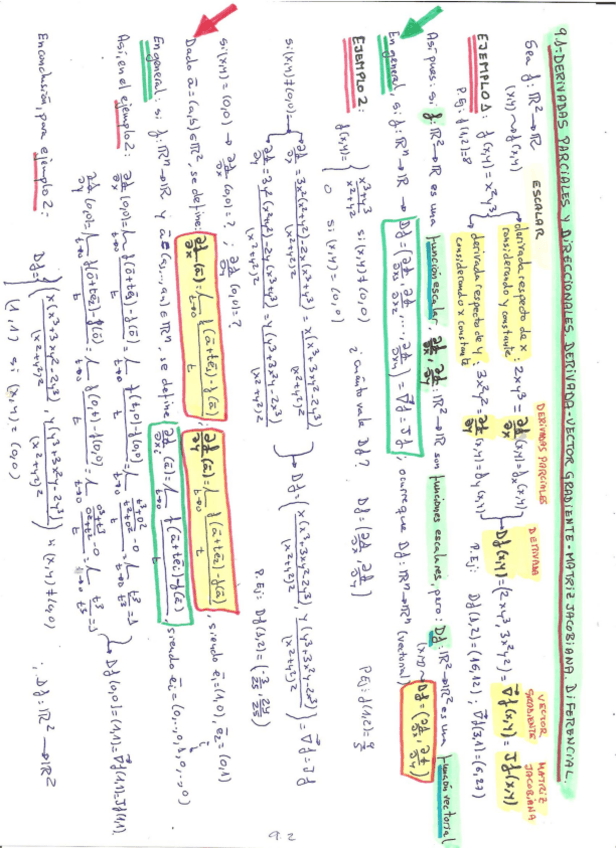 9.1-DERIVADAS PARCIALES Y DIRECCIONALES. DERIVADA-VECTOR GRADIENTE-MATRIZ JACOBIANA. DIFERENCIAL.
Sea f: ℝ² → ℝ ESCALAR DERIVADAS PARCIALES DERIVADA VECTOR GRADIENTE MATRIZ JACOBIANA
(x,y) ⇝ f(x,y)
EJEMPLO 1: f(x,y) = x²y³ derivada respecto de x: 2xy³ = ∂f/∂x (x,y) = fx(x,y) Df(x,y) = (2xy³, 3x²y²) = ∇f(x,y) = Jf(x,y)
considerando y constante
derivada respecto de y: 3x²y² = ∂f/∂y (x,y) = fy(x,y)
considerando x constante
P.Ej: f(1,2)=8 P.Ej: Df(1,2) = (16,12); ∇f(3,1) = (6,27)
Así pues: si f: ℝ² → ℝ es una función escalar, ∂f/∂x, ∂f/∂y: ℝ² → ℝ son funciones escalares, pero: Df: ℝ² → ℝ² es una función vectorial
(x,y) ⇝ Df = (∂f/∂x, ∂f/∂y)
En general, si f: ℝⁿ → ℝ → Df = (∂f/∂x₁, ∂f/∂x₂, ..., ∂f/∂xₙ) = ∇f = Jf; ocurre que Df: ℝⁿ → ℝⁿ (vectorial)
EJEMPLO 2: f(x,y) = { x³+y³/x²+y² si (x,y) ≠ (0,0) ¿cuánto vale Df? Df = (∂f/∂x, ∂f/∂y) P.Ej: f(1,2) = 9/5
0 si (x,y) = (0,0)
si (x,y) ≠ (0,0) → ∂f/∂x = 3x²(x²+y²) - 2x(x³+y³)/(x²+y²)² = x(x³+3xy²-2y³)/(x²+y²)² Df = (x(x³+3xy²-2y³)/(x²+y²)², y(y³+3x²y-2x³)/(x²+y²)²) = ∇f = Jf
∂f/∂y = 3y²(x²+y²) - 2y(x³+y³)/(x²+y²)² = y(y³+3x²y-2x³)/(x²+y²)² P.Ej: Df(1,2) = (-3/25, 24/25)
si (x,y) = (0,0) → ∂f/∂x (0,0) = ?; ∂f/∂y (0,0) = ?
Dado ā = (a,b) ∈ ℝ², se define: ∂f/∂x (ā) = lim t→0 f(ā+tē₁) - f(ā)/t; ∂f/∂y (ā) = lim t→0 f(ā+tē₂) - f(ā)/t, siendo ē₁ = (1,0), ē₂ = (0,1)
En general: si f: ℝⁿ → ℝ y ā = (a₁,...,aₙ) ∈ ℝⁿ, se define ∂f/∂xᵢ (ā) = lim t→0 f(ā+tēᵢ) - f(ā)/t, siendo ēᵢ = (0,...,0,1,0,...,0)
Así, en el ejemplo 2: ∂f/∂x (0,0) = lim t→0 f(ā+tē₁) - f(ā)/t = lim t→0 f(t,0) - f(0,0)/t = lim t→0 t³+0²/t²+0² - 0/t = lim t→0 t³/t³ = 1
∂f/∂y (0,0) = lim t→0 f(ā+tē₂) - f(ā)/t = lim t→0 f(0,t) - f(0,0)/t = lim t→0 0²+t³/0²+t² - 0/t = lim t→0 t³/t³ = 1 Df(0,0) = (1,1) = ∇f(1,1) = Jf(1,1)
En conclusión, para ejemplo 2: Df = { (x(x³+3xy²-2y³)/(x²+y²)², y(y³+3x²y-2y³)/(x²+y²)²) si (x,y) ≠ (0,0) ; Df: ℝ² → ℝ²
(1,1) si (x,y) = (0,0)
9.2